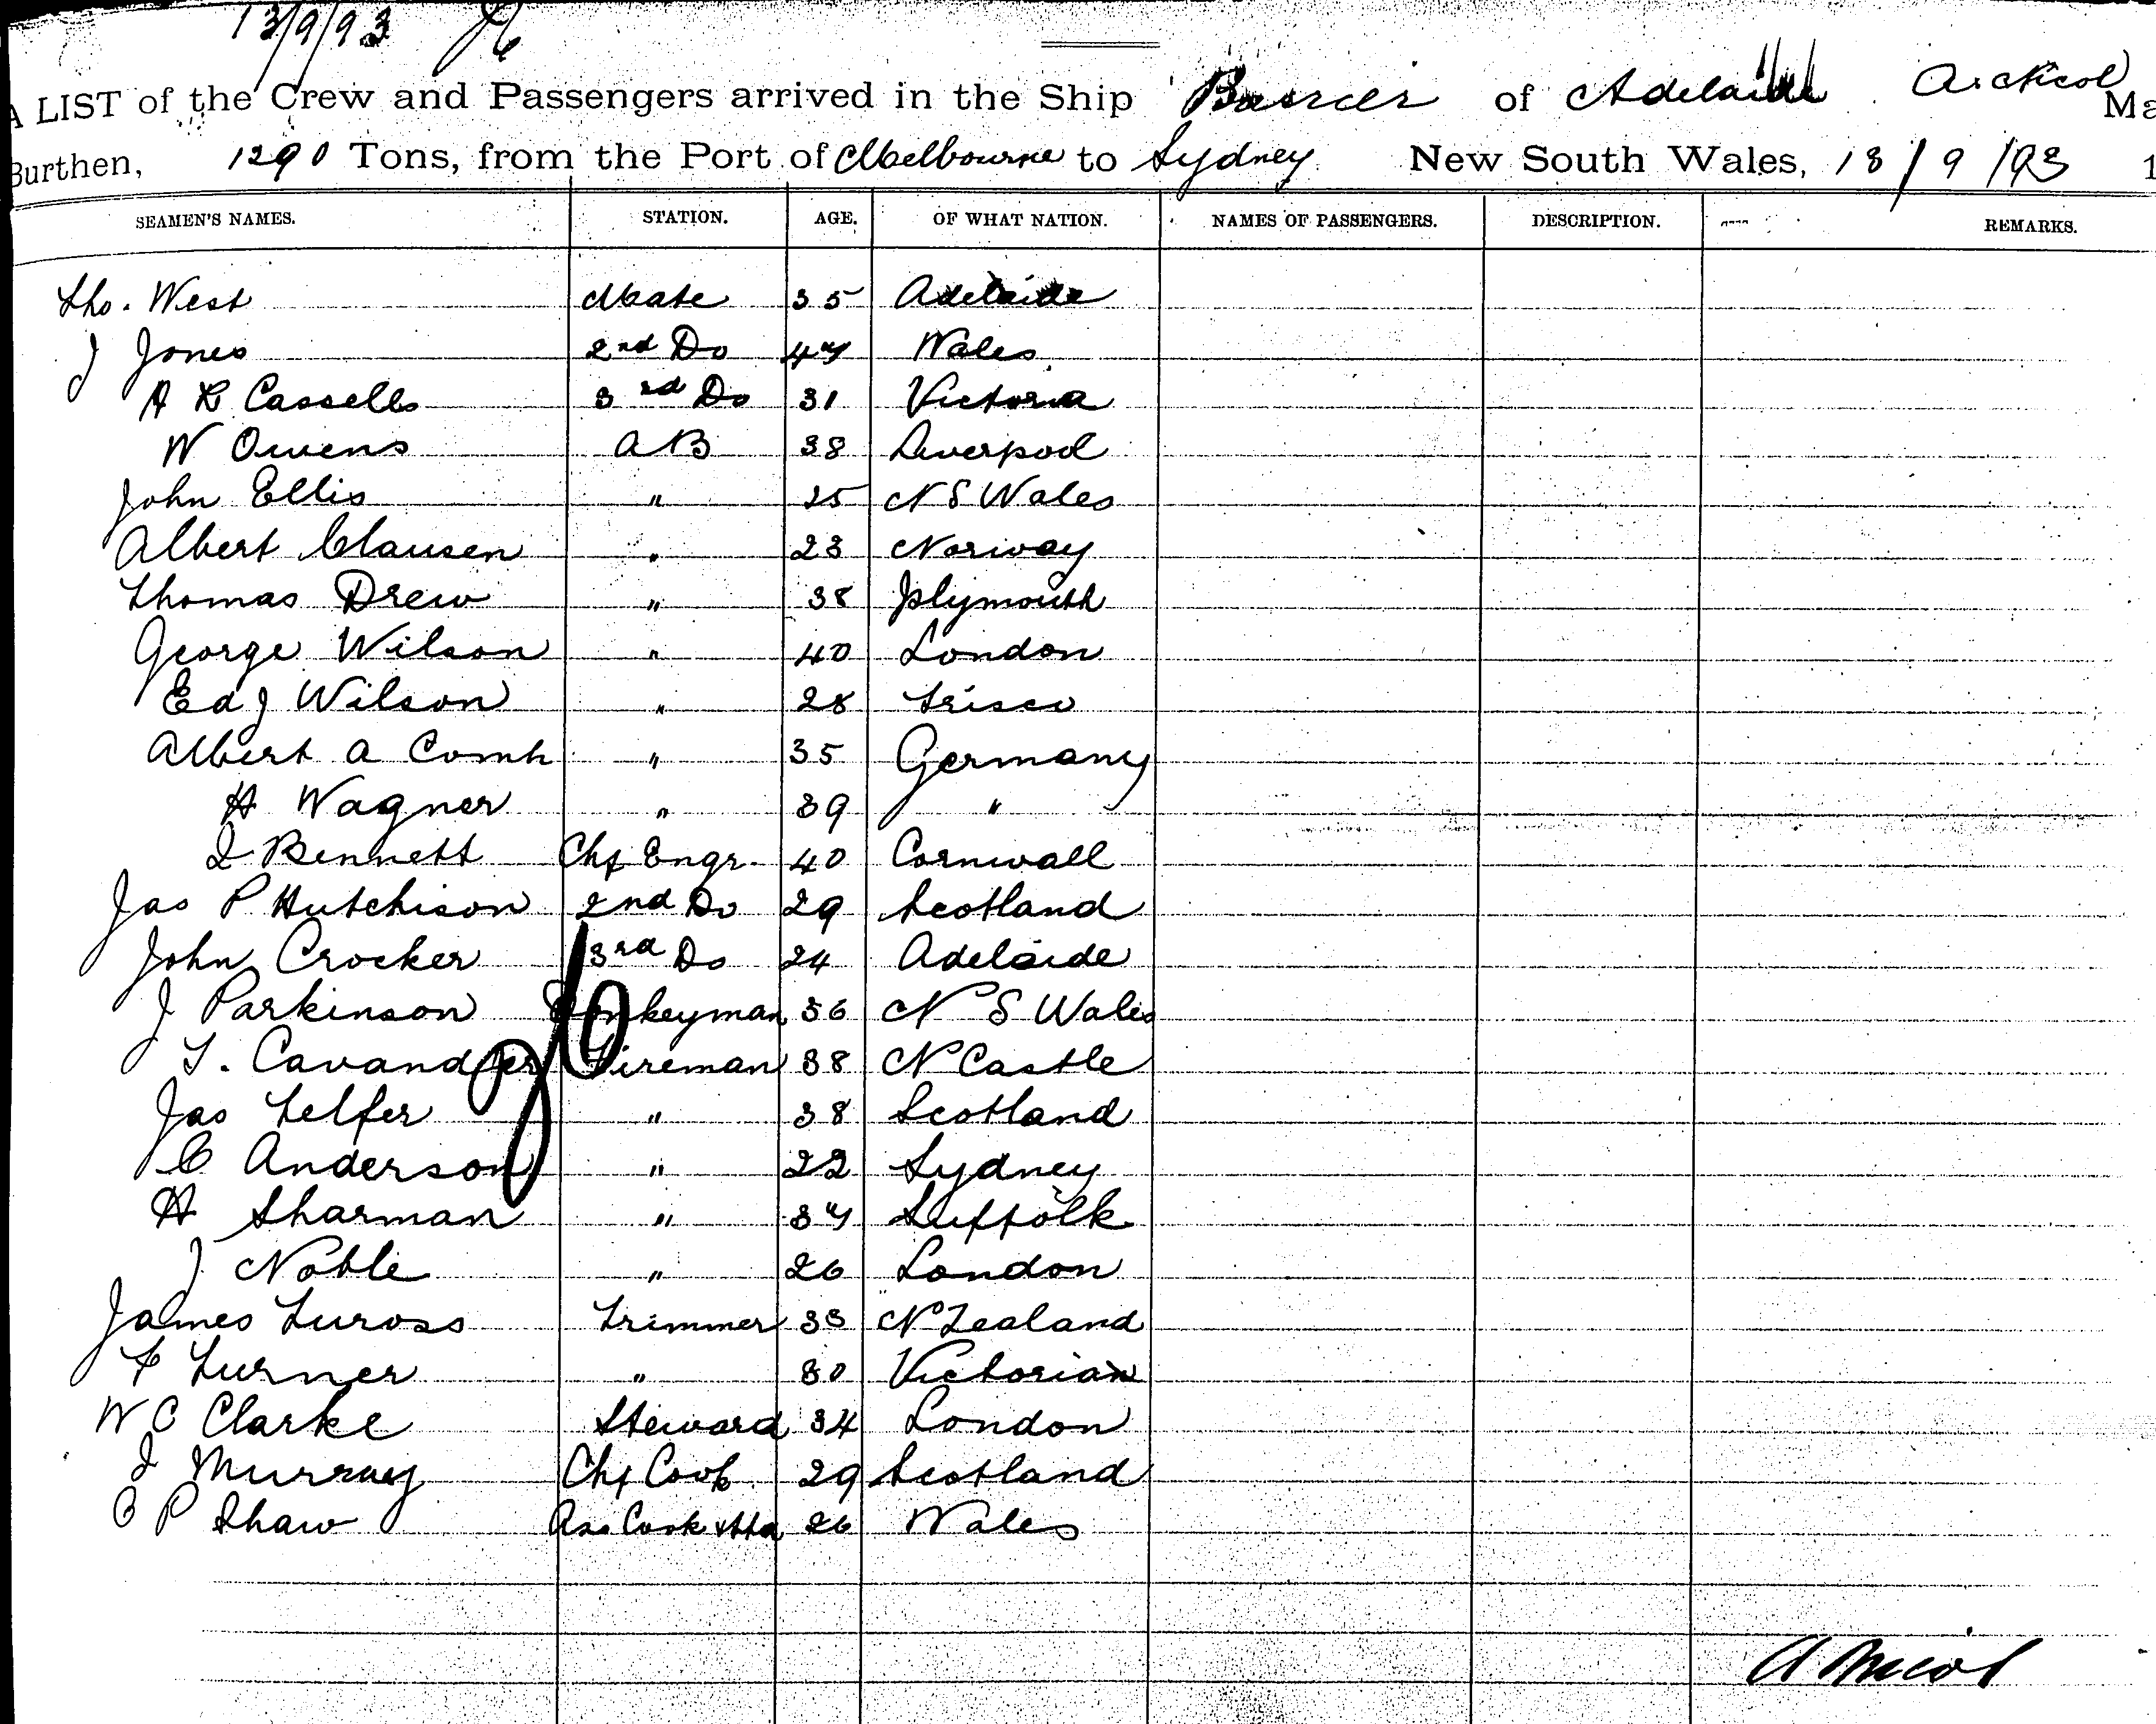 13/9/93
A LIST of the Crew and Passengers arrived in the Ship Barrier of Adelaide A. Nicol Ma
Burthen, 1290 Tons, from the Port of Melbourne to Sydney New South Wales, 13/9/93 1
SEAMEN'S NAMES. STATION. AGE. OF WHAT NATION. NAMES OF PASSENGERS. DESCRIPTION. REMARKS.
Tho. West Mate 35 Adelaide
J Jones 2nd Do 47 Wales
A R Cassells 3rd Do 31 Victoria
W Owens AB 38 Liverpool
John Ellis " 25 N S Wales
Albert Clausen " 23 Norway
Thomas Drew " 38 Plymouth
George Wilson " 40 London
Ed J Wilson " 28 Frisco
Albert A " 35 Germany
H Wagner " 39 "
Bennett Chf Engr. 40 Cornwall
Jas P Hutchison 2nd Do 29 Scotland
John Crocker 3rd Do 24 Adelaide
J Parkinson Donkeyman 36 N S Wales
T. Cavander Fireman 38 N Castle
Jas Telfer " 38 Scotland
C Anderson " 22 Sydney
H Sharman " 37 Suffolk
J Noble " 26 London
James Trimmer 33 N Zealand
F Turner " 30 Victorian
W C Clarke Steward 34 London
J Murray Chf Cook 29 Scotland
C P Shaw Ass Cook 26 Wales
A Nicol